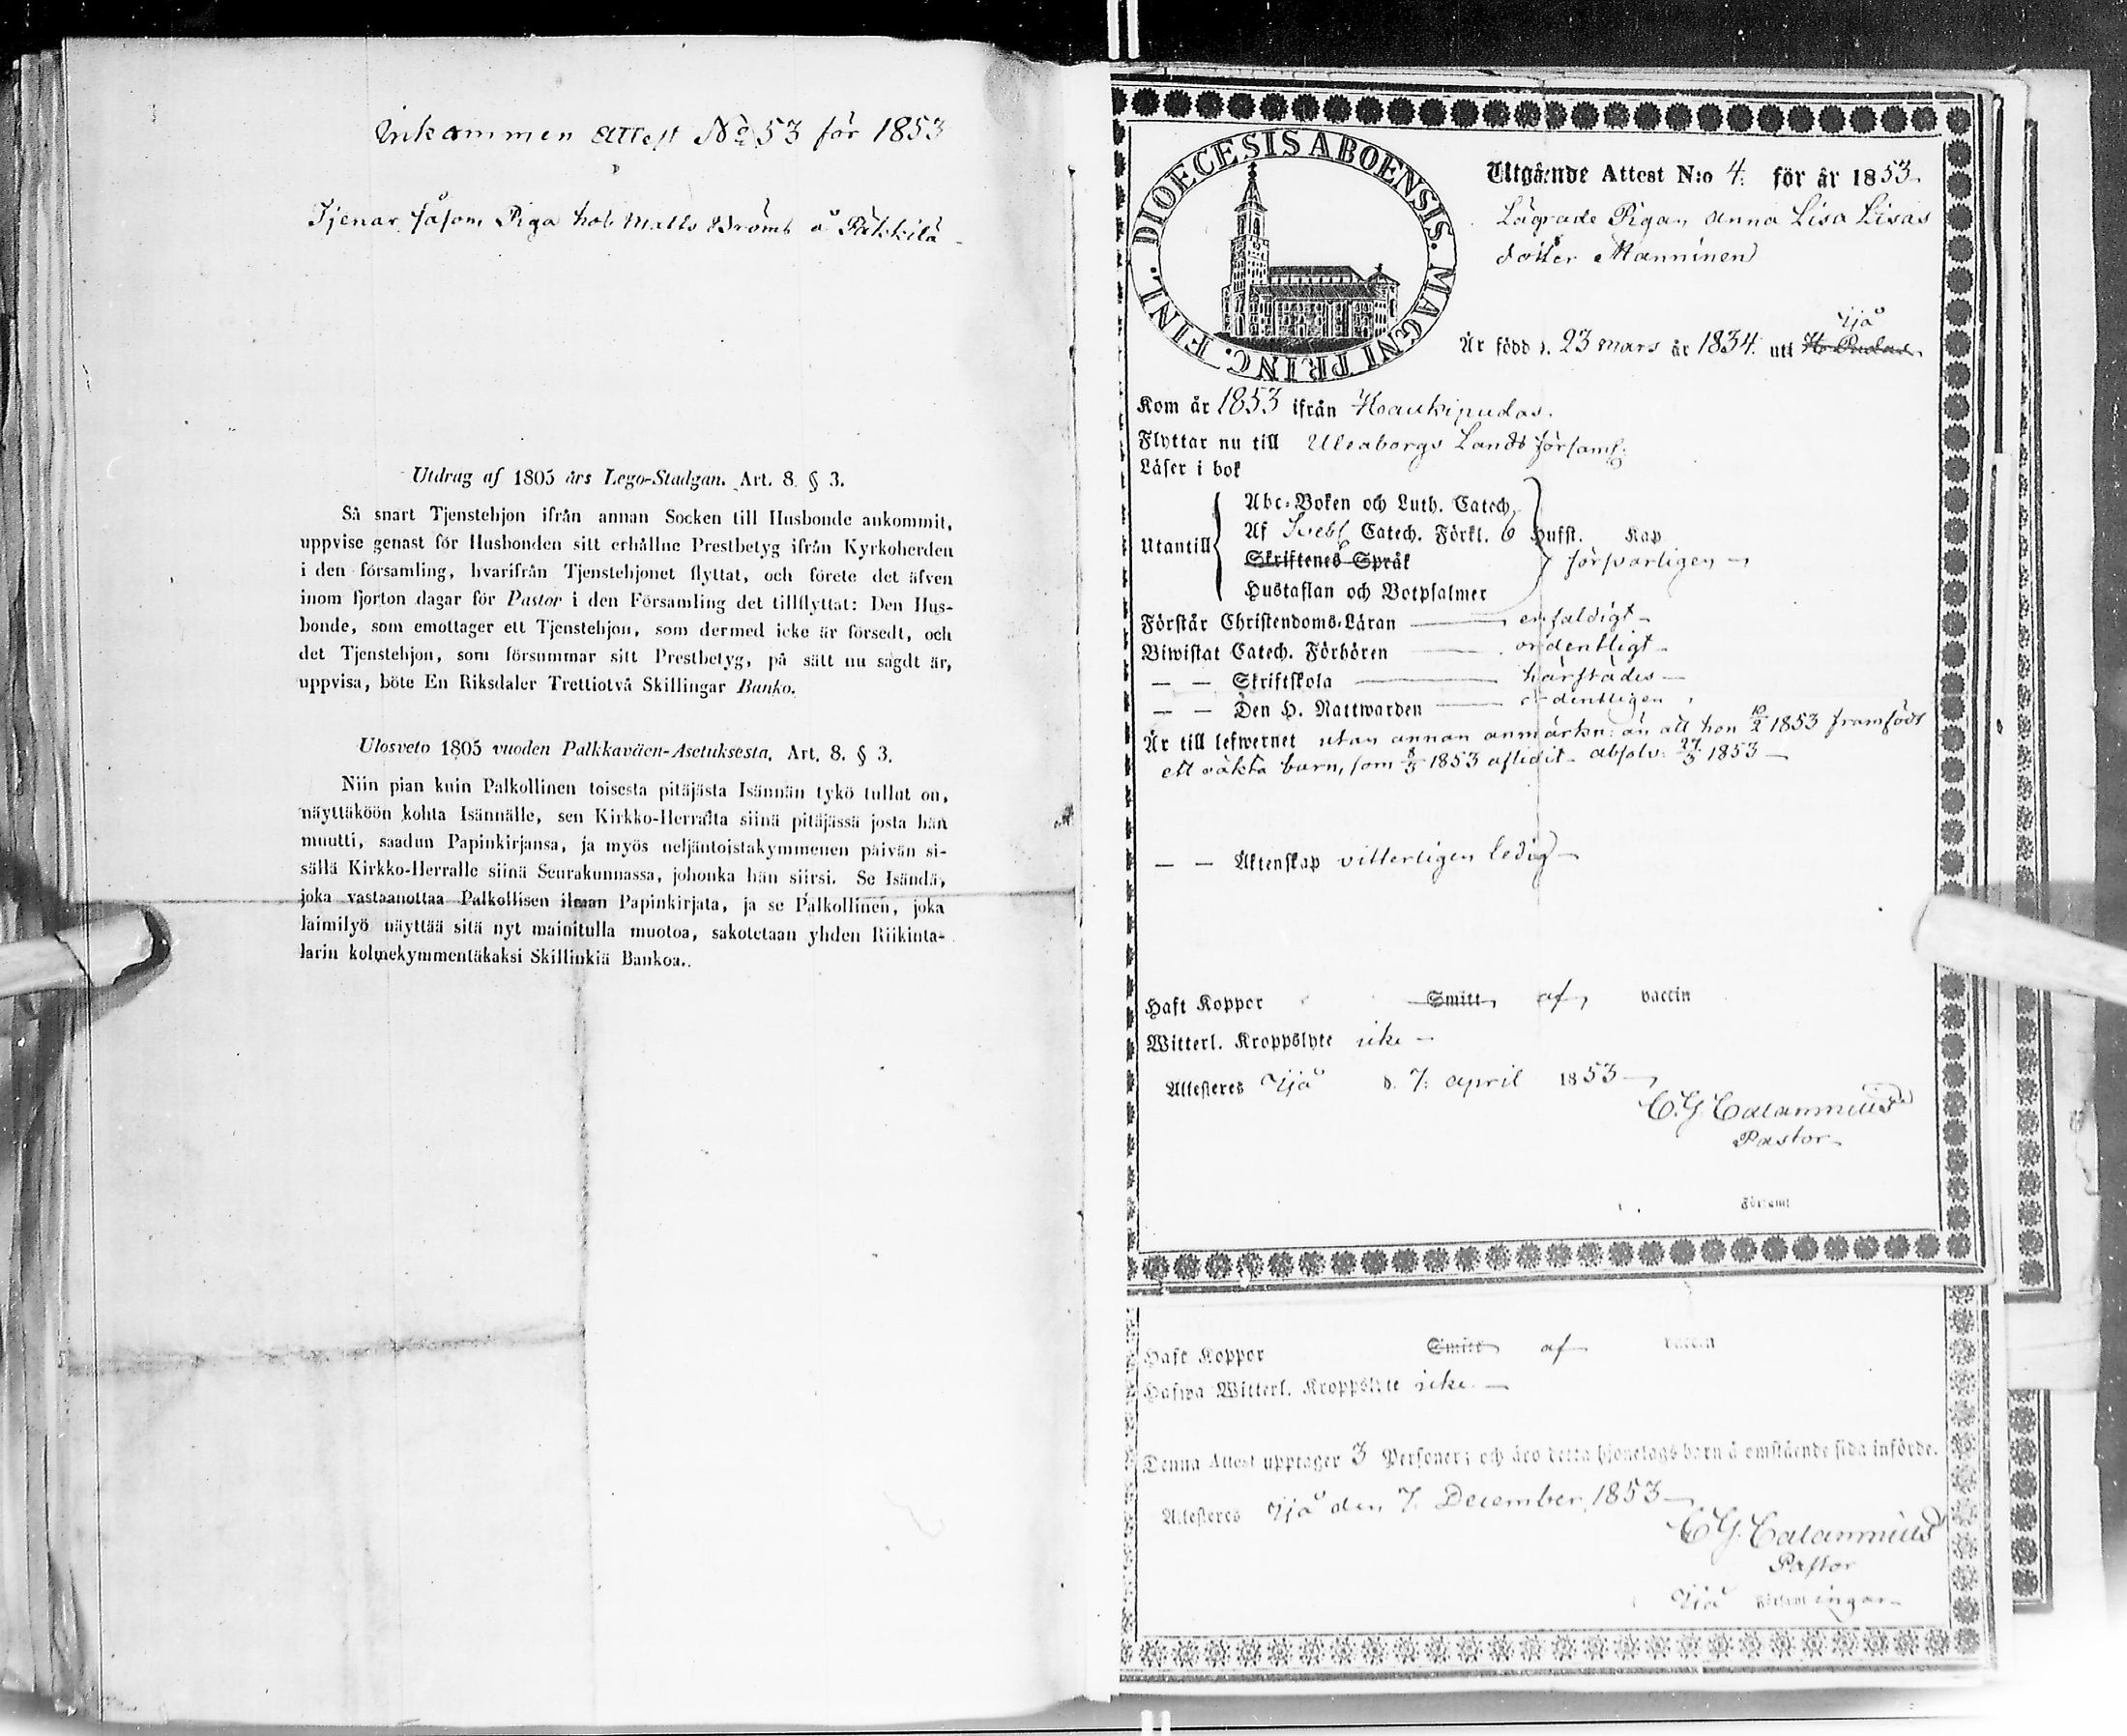 Inkommen Attest No 53 för 1853
Tjenar såsom Piga hos Matts Ströms å Pätkkilä
Utdrag af 1805 års Lego-Stadgan. Art. 8. § 3.
Så snart Tjenstehjon ifrån annan Socken till Husbonde ankommit,
uppvise genast för Husbonden sitt erhållne Prestbetyg ifrån Kyrkoherden
i den församling, hvarifrån Tjenstehjonet flyttat, och förete det äfven
inom fjorton dagar för Pastor i den Församling det tillflyttat: Den Hus-
bonde, som emottager ett Tjenstehjon, som dermed icke är försedt, och
det Tjenstehjon, som försummar sitt Prestbetyg, på sätt nu sagdt är,
uppvisa, böte En Riksdaler Trettiotvå Skillingar Banko.
Ulosveto 1805 vuoden Palkkaväen-Asetuksesta. Art. 8. § 3.
Niin pian kuin Palkollinen toisesta pitäjästa Isännän tykö tullut on,
näyttäköön kohta Isännälle, sen Kirkko-Herralta siinä pitäjässä josta hän
muutti, saadun Papinkirjansa, ja myös neljäntoistakymmenen päivän si-
sällä Kirkko-Herralle siinä Seurakunnassa, johonka hän siirsi. Se Isändä,
joka vastaanottaa Palkollisen ilman Papinkirjata, ja se Palkollinen, joka
laimilyö näyttää sitä nyt mainitulla muotoa, sakotetaan yhden Riikinta-
larin kolmekymmentäkaksi Skillinkiä Bankoa.
DIOECESIS ABOENSIS. MAGNI PRINC. FINL.
Utgående Attest N:o 4. för år 1853.
Lägrade Pigan Anna Lisa Lisas
dotter Manninen
Ijå
Är född d. 23 mars år 1834. uti H. Pudas
Kom år 1853 ifrån Haukipudas.
Flyttar nu till Uleåborgs Lands församl.
Läser i bok
Abc-Boken och Luth. Catech.
Utantill Af Svebl. Catech. Förkl. 6 Hufst. Kap
Skriftenes Språk försvarligen
Hustaflan och Botpsalmer
Förstår Christendoms-Läran enfaldigt
Biwistat Catech. Förhören ordentligt
— — Skriftskola härstädes
— — Den H. Nattwarden ordentligen
Är till lefwernet utan annan anmärkn: än att hon 10/2 1853 framfödt
ett oäkta barn, som 8/3 1853 aflidit. absolv. 27/3 1853
— — Äktenskap vitterligen ledig
Haft Kopper Smitt af vaccin
Witterl. Kroppslyte icke
Attesteres Ijå d. 7. April 1853
C. G. Calamnius
Pastor
Församl
Haft Kopper Smitt af vaccin
Hafwa Witterl. Kroppslyte icke
Denna Attest upptager 3 Personer; och äro detta hjonelags barn å omstående sida införde.
Attesteres Ijå den 7. December 1853
C G. Calamnius
Pastor
Ijå Församlingar